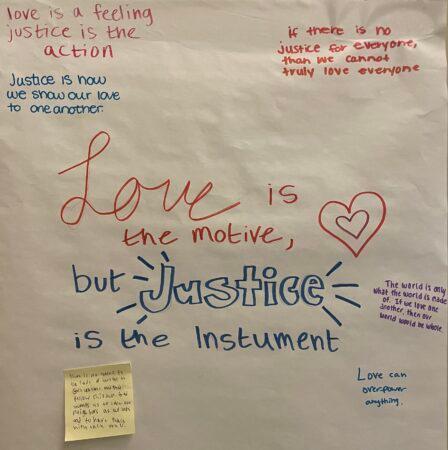 love is a feeling
justice is the
action
Justice is how
we show our love
to one another.
if there is no
justice for everyone,
than we cannot
truly love everyone
Love is
the motive,
but Justice
is the Instument
The world is only
what the world is made
of. If we love one
another, then our
world would be whole.
Love can
overpower
anything.
and to have peace
with each